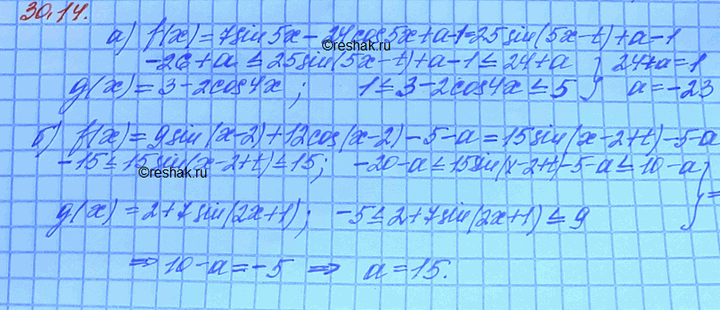 30.14.
а) f(x) = 7sin5x - 24cos5x + a-1 = 25sin(5x-t) + a-1
©reshak.ru
-26+a ≤ 25sin(5x-t)+a-1 ≤ 24+a } 24+a=1
g(x) = 3-2cos4x ; 1 ≤ 3-2cos4x ≤ 5 } a=-23
б) f(x) = 9sin(x-2)+12cos(x-2)-5-a = 15sin(x-2+t)-5-a
-15 ≤ 15sin(x-2+t) ≤ 15; -20-a ≤ 15sin(x-2+t)-5-a ≤ 10-a
©reshak.ru
g(x) = 2+7sin(2x+1); -5 ≤ 2+7sin(2x+1) ≤ 9 } =
⇒ 10-a=-5 ⇒ a=15.